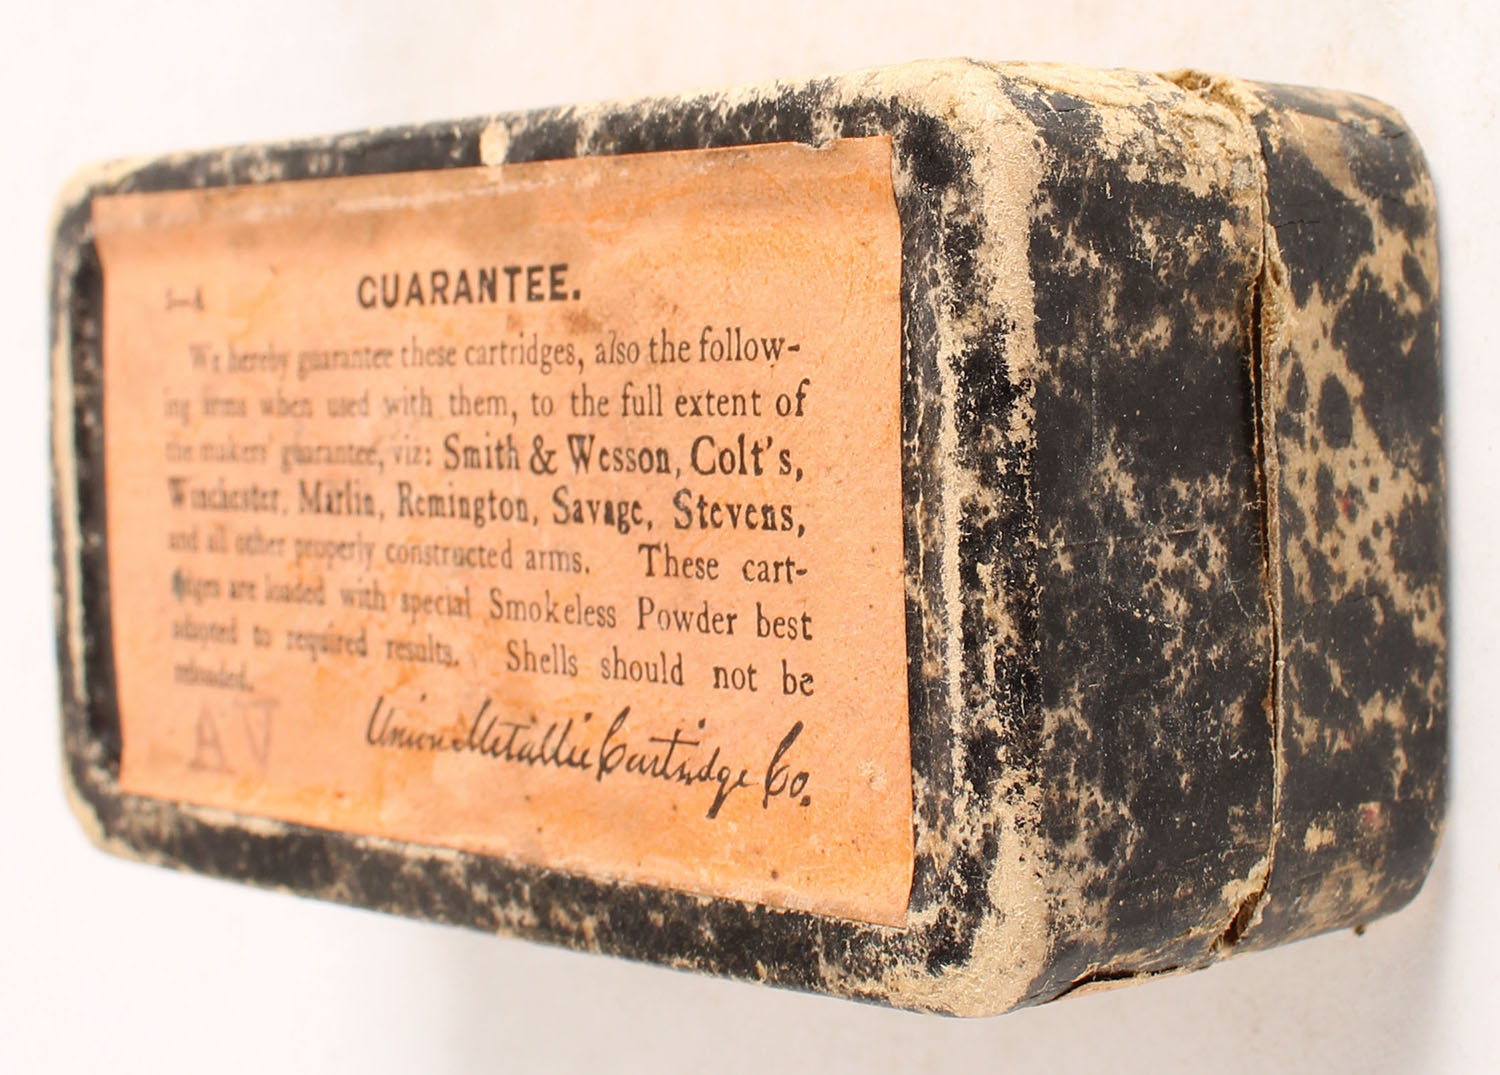 GUARANTEE.
1—A
We hereby guarantee these cartridges, also the follow-
ing arms when used with them, to the full extent of
the makers' guarantee, viz: Smith & Wesson, Colt's,
Winchester, Marlin, Remington, Savage, Stevens,
and all other properly constructed arms. These cart-
ridges are loaded with special Smokeless Powder best
adapted to required results. Shells should not be
reloaded.
Union Metallic Cartridge Co.
AV